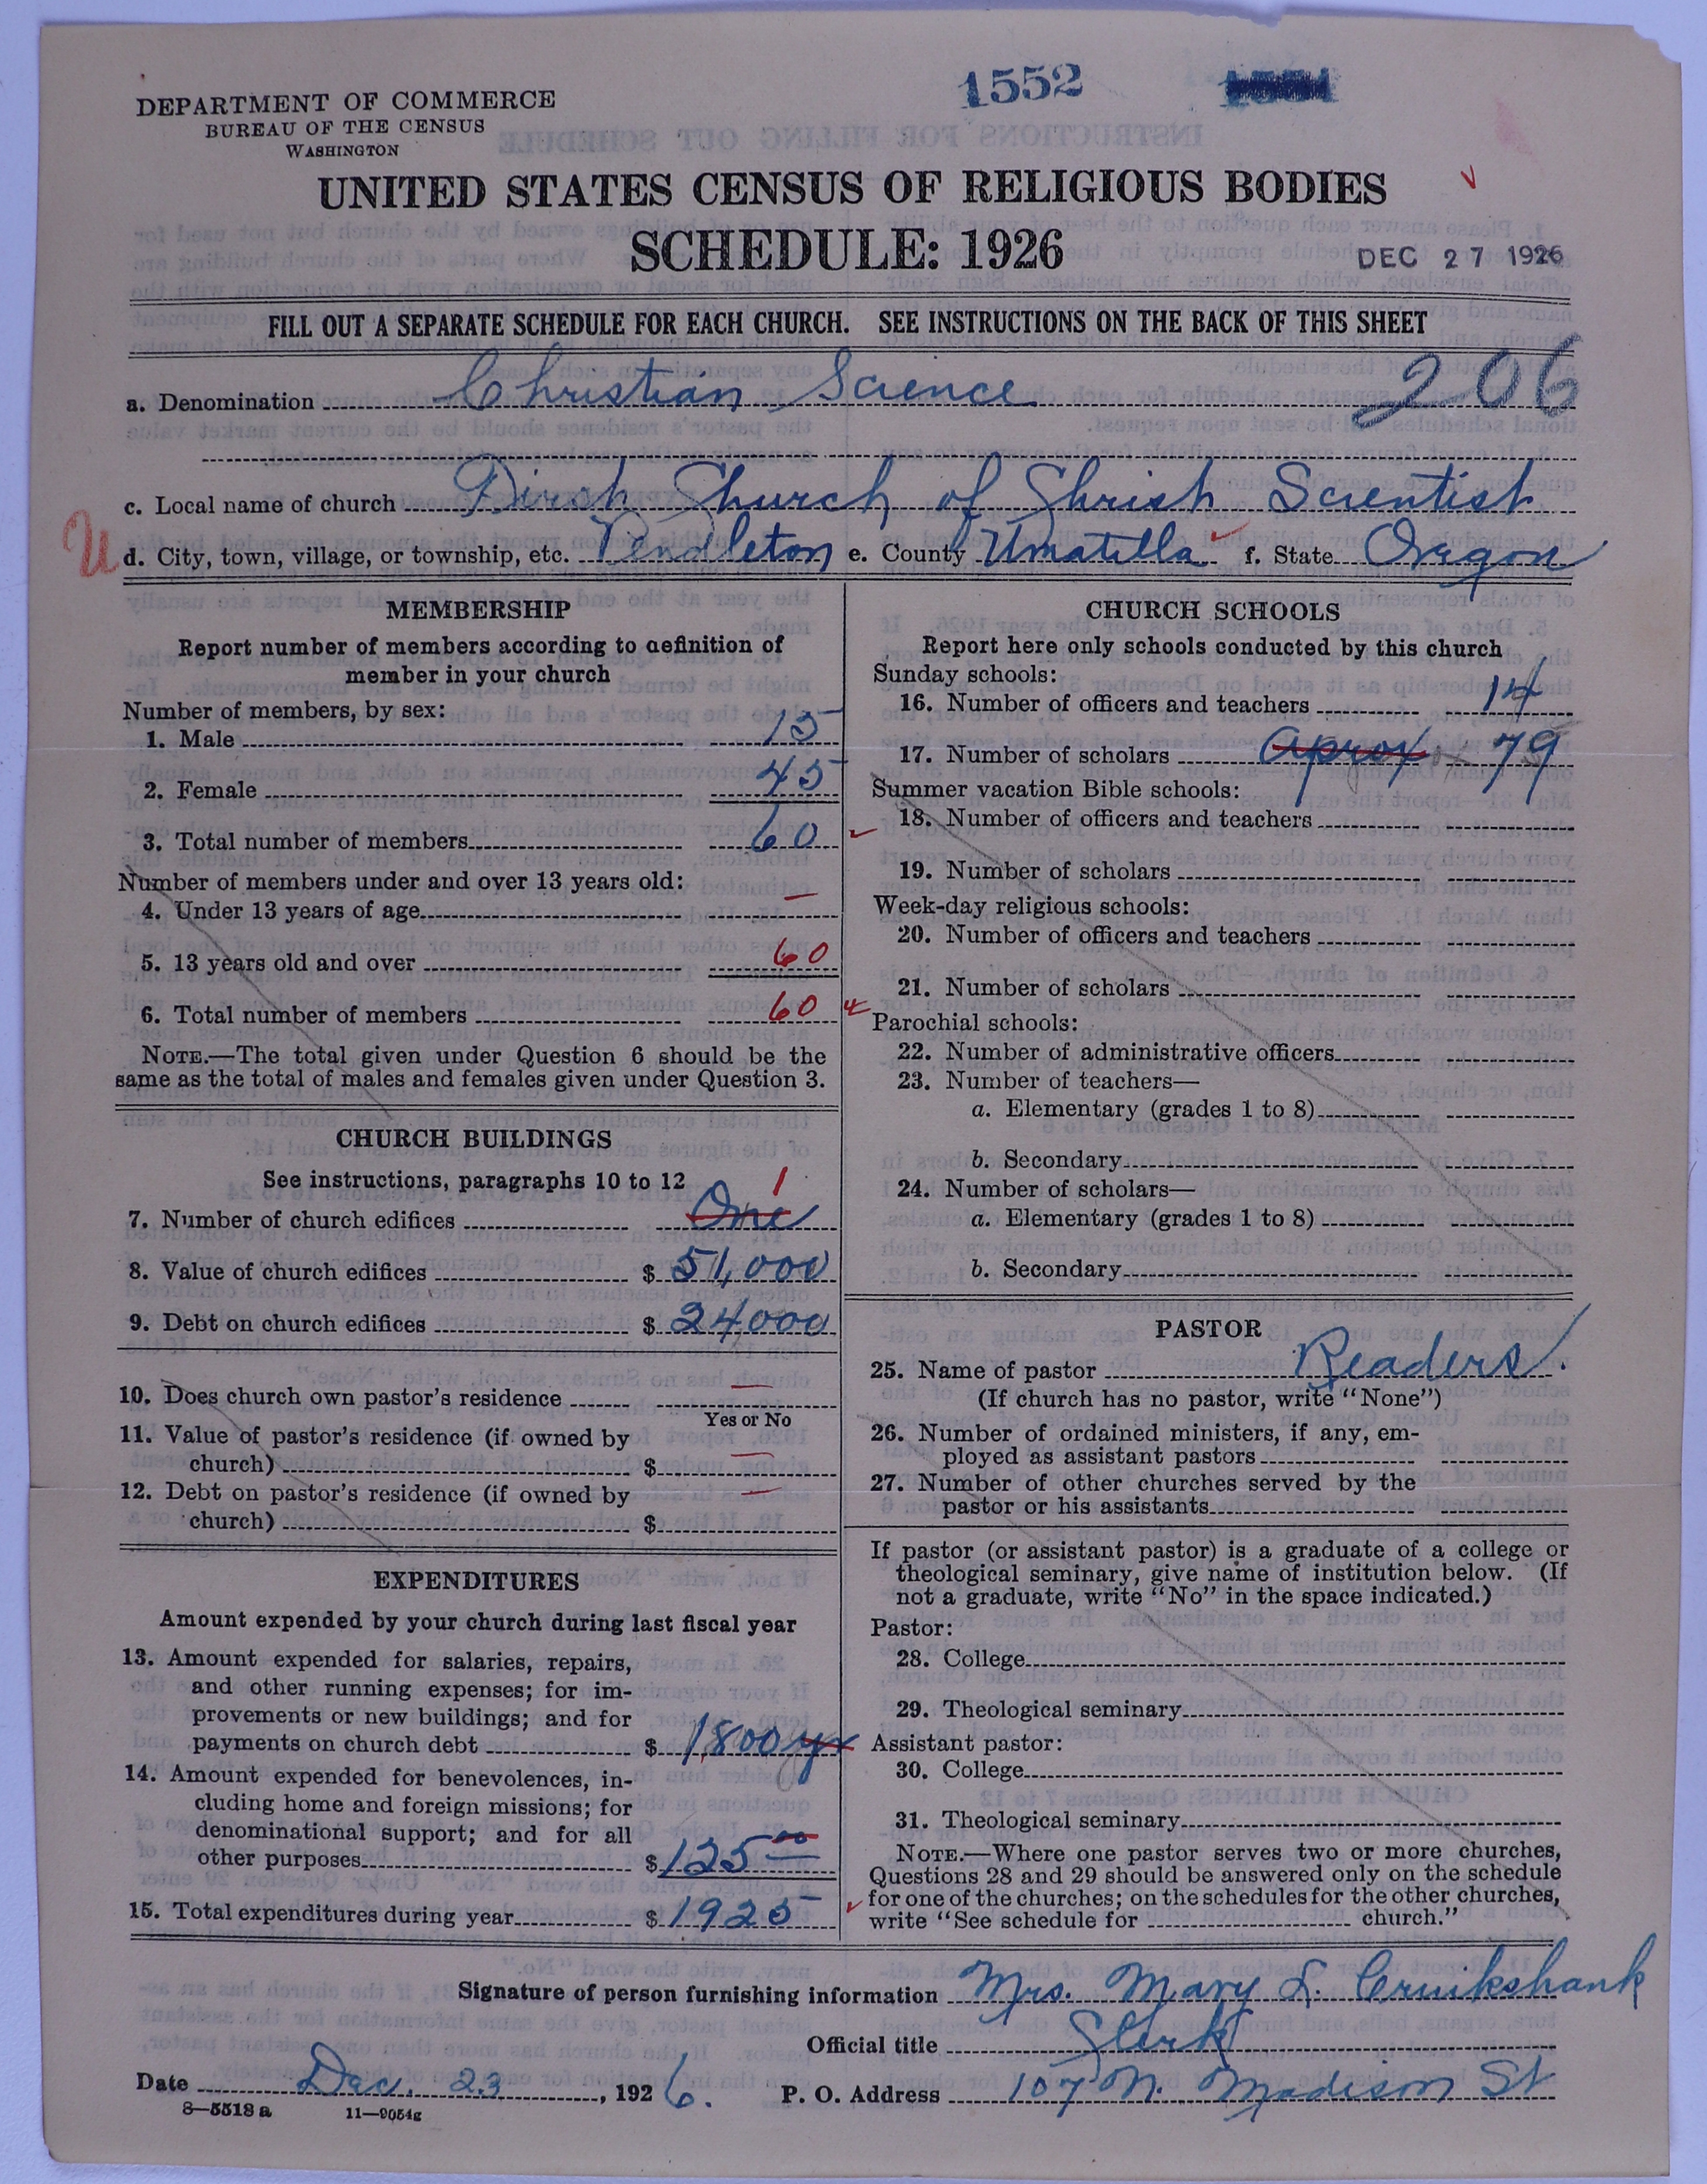 1552 1551
DEPARTMENT OF COMMERCE
BUREAU OF THE CENSUS
WASHINGTON
UNITED STATES CENSUS OF RELIGIOUS BODIES
SCHEDULE: 1926
DEC 27 1926
FILL OUT A SEPARATE SCHEDULE FOR EACH CHURCH. SEE INSTRUCTIONS ON THE BACK OF THIS SHEET
a. Denomination Christian Science 206
c. Local name of church First Church of Christ Scientist
U d. City, town, village, or township, etc. Pendleton e. County Umatilla f. State Oregon
MEMBERSHIP
Report number of members according to definition of
member in your church
Number of members, by sex:
1. Male 15
2. Female 45
3. Total number of members 60
Number of members under and over 13 years old:
4. Under 13 years of age —
5. 13 years old and over 60
6. Total number of members 60
NOTE.—The total given under Question 6 should be the
same as the total of males and females given under Question 3.
CHURCH BUILDINGS
See instructions, paragraphs 10 to 12
7. Number of church edifices One 1
8. Value of church edifices $ 51,000
9. Debt on church edifices $ 24000
10. Does church own pastor's residence —
Yes or No
11. Value of pastor's residence (if owned by
church) $ —
12. Debt on pastor's residence (if owned by
church) $ —
EXPENDITURES
Amount expended by your church during last fiscal year
13. Amount expended for salaries, repairs,
and other running expenses; for im-
provements or new buildings; and for
payments on church debt $ 1,800 yr
14. Amount expended for benevolences, in-
cluding home and foreign missions; for
denominational support; and for all
other purposes $ 125 00
15. Total expenditures during year $ 1925
CHURCH SCHOOLS
Report here only schools conducted by this church
Sunday schools:
16. Number of officers and teachers 14
17. Number of scholars Aprox 79
Summer vacation Bible schools:
18. Number of officers and teachers
19. Number of scholars
Week-day religious schools:
20. Number of officers and teachers
21. Number of scholars
Parochial schools:
22. Number of administrative officers
23. Number of teachers—
a. Elementary (grades 1 to 8)
b. Secondary
24. Number of scholars—
a. Elementary (grades 1 to 8)
b. Secondary
PASTOR
25. Name of pastor Readers.
(If church has no pastor, write "None")
26. Number of ordained ministers, if any, em-
ployed as assistant pastors
27. Number of other churches served by the
pastor or his assistants
If pastor (or assistant pastor) is a graduate of a college or
theological seminary, give name of institution below. (If
not a graduate, write "No" in the space indicated.)
Pastor:
28. College
29. Theological seminary
Assistant pastor:
30. College
31. Theological seminary
NOTE.—Where one pastor serves two or more churches,
Questions 28 and 29 should be answered only on the schedule
for one of the churches; on the schedules for the other churches,
write "See schedule for church."
Signature of person furnishing information Mrs. Mary L. Cruikshank
Official title Clerk
Date Dec. 23, 1926. P. O. Address 107 N. Madison St
8—5518a 11—9054g